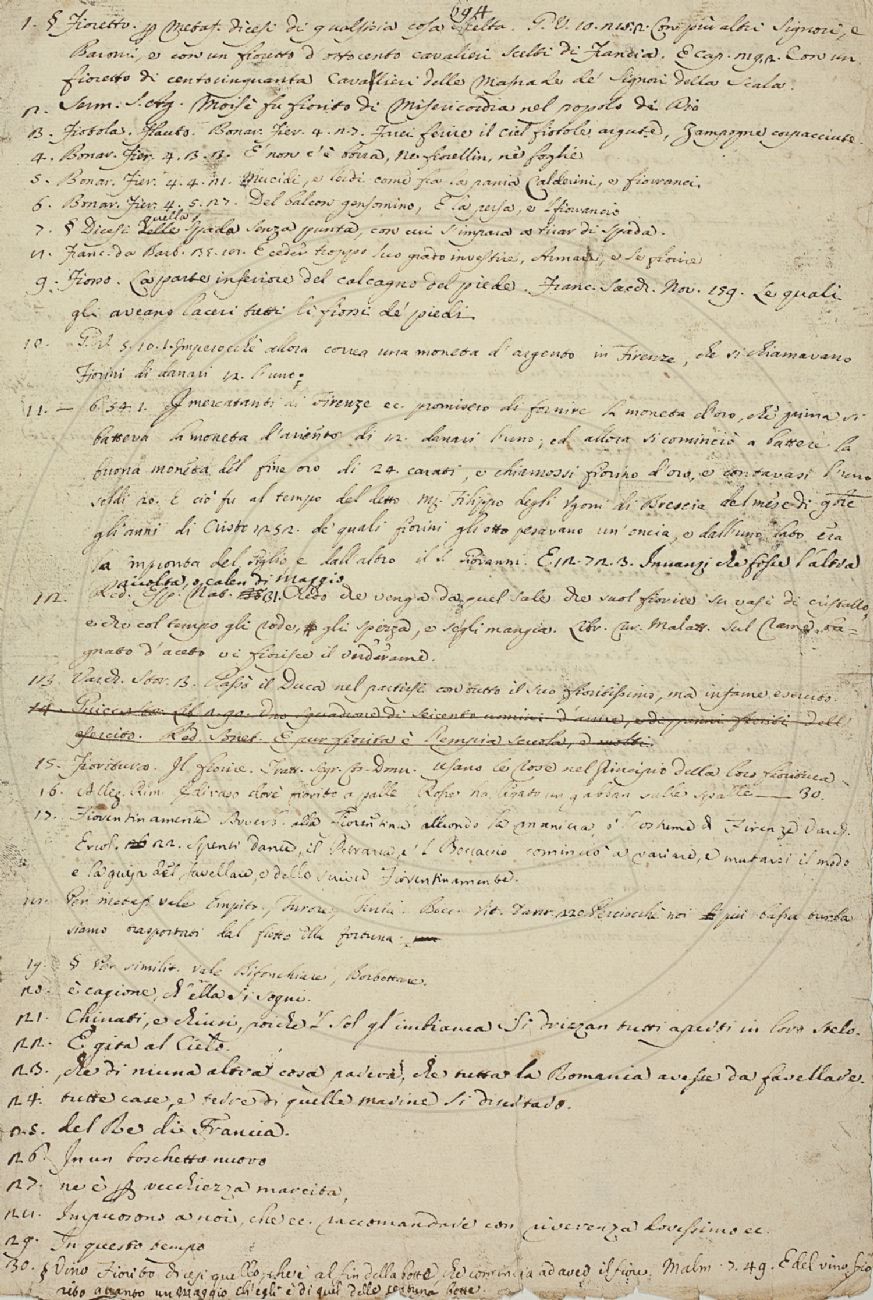 194
1. § Fioretto. p Metaf. dicesi di qualsisia cosa scelta. G. V. 10. Con più altri Signori, e
Baroni, e con un fioretto d'ottocento cavalieri scelti di Fiandra. E cap. Con un
fioretto di centocinquanta Cavallieri delle Masnade de' Signori della Scala.
2. Sam: S. Ag. Moisè fù fiorito di Misericordia nel popolo di Dio
3. Fistola. Flauto. Bonar. Fier. 4. 2. 7. ferire il ciel fistole argute, Zampogne corpacciute
4. Bonar. Fier. 4. 3. 3. E non c'è borra, nè fiorellin, nè foglie
5. Bonar. Fier. 4. 4. 21. Mucidi, e lerdi come fra la pania Calderini, e fiorranci.
6. Bonar. Fier. 4. 5. 27. Del balcon gensomino, E la persa, e 'l fiorrancio
7. § Dicesi quella Spada senza punta, con cui s'impara a tirar di spada.
Franc. da Barb. E ceder troppo suo grado investire, Armare, e se fiorire
9. Fiosso. La parte inferiore del calcagno del piede. Franc. Sacch. Nov. 159. Le quali
gli aveano laceri tutti li fiossi de' piedi
10. G. V. 5. 10. 1. Imperocchè allora correa una moneta d'argento in Firenze, che si chiamavano
Fiorini di danari 12. l'uno;
11. — 6. 54. 1. I mercatanti di Firenze ec. promisero di fornire la moneta d'oro, che prima si
batteva la moneta d'ariento di 12. danari l'uno; ed allora si cominciò a battere la
buona moneta del fine oro di 24. carati, e chiamossi fiorino d'oro, e contavasi l'uno
soldi 20. E ciò fu al tempo del detto M. Filippo degli Ugoni di Brescia del mese di
gli anni di Cristo 1252. de' quali fiorini gli otto pesavano un'oncia, e dall'uno lato era
la 'mpronta del Giglio, e dall'altro il S. Giovanni. E. 12. 72. 3. Innanzi che fosse l'altra
ricolta, e calen di Maggio
12. Red. Esp. Nat. 31. Credo che venga da quel sale che suol fiorire su vasi di cristallo,
e che col tempo gli rode, gli sperza, e se gli mangia. Libr. Cur. Malatt. Sul Rame ba-
gnato d'aceto vi fiorisce il verderame.
13. Varch. Stor. 13. Passò il Duca nel partirsi con tutto il suo floridissimo, ma infame esercito.
14. Guicc. Stor. Uno squadrone di seicento uomini d'arme, e de' primi floridi dell'
esercito. Red. Sonet. E pur fiorita è l'empia scuola, e molti
15. Fioritura. Il fiorire. Tratt. Segr. Cos. Donn. Usano le Rose nel principio della loro fioritura
16. Alleg. Rim. fiorito a palle Rosse ha legato un gabban sulle spalle — 30.
17. Fiorentinamente Avverb. alla Fiorentina secondo la maniera, o 'l costume di Firenze. Varch.
Ercol. 22. Spenti Dante, il Petrarca, e 'l Boccaccio cominciò a variare, e mutarsi il modo
e la guisa del favellare, e dello scrivere Fiorentinamente.
Per metaf. vale Impito, Furore, Furia. Bocc. Vit. Dant. Perciocchè noi più bassa turba
siamo trasportati dal fiotto della fortuna
19. § Per similit. vale Rifonchiare, Borbottare.
20. è cagione, ch'ella si sogni.
21. Chinati, e chiusi, poichè 'l Sol gl'imbianca Si drizzan tutti aperti in loro stelo.
22. E gita al Cielo.
23. che di niuna altra cosa pareva, che tutta la Romania avesse da favellare.
24. tutte case, e terre di quelle marine si disertaro.
25. del Re di Francia.
26. In un boschetto nuovo
27. ne è p vecchiezza marcita,
Impuosono a noi, che ec. raccomandare con riverenza dovessimo ec.
29. In questo tempo
30. § Vino Fiorito dicesi quello, che è al fin della botte, che comincia ad aver il fiore. Malm. 7. 49. E del vino fio
rito quanto un Maggio ch'egli è di quel delle botte